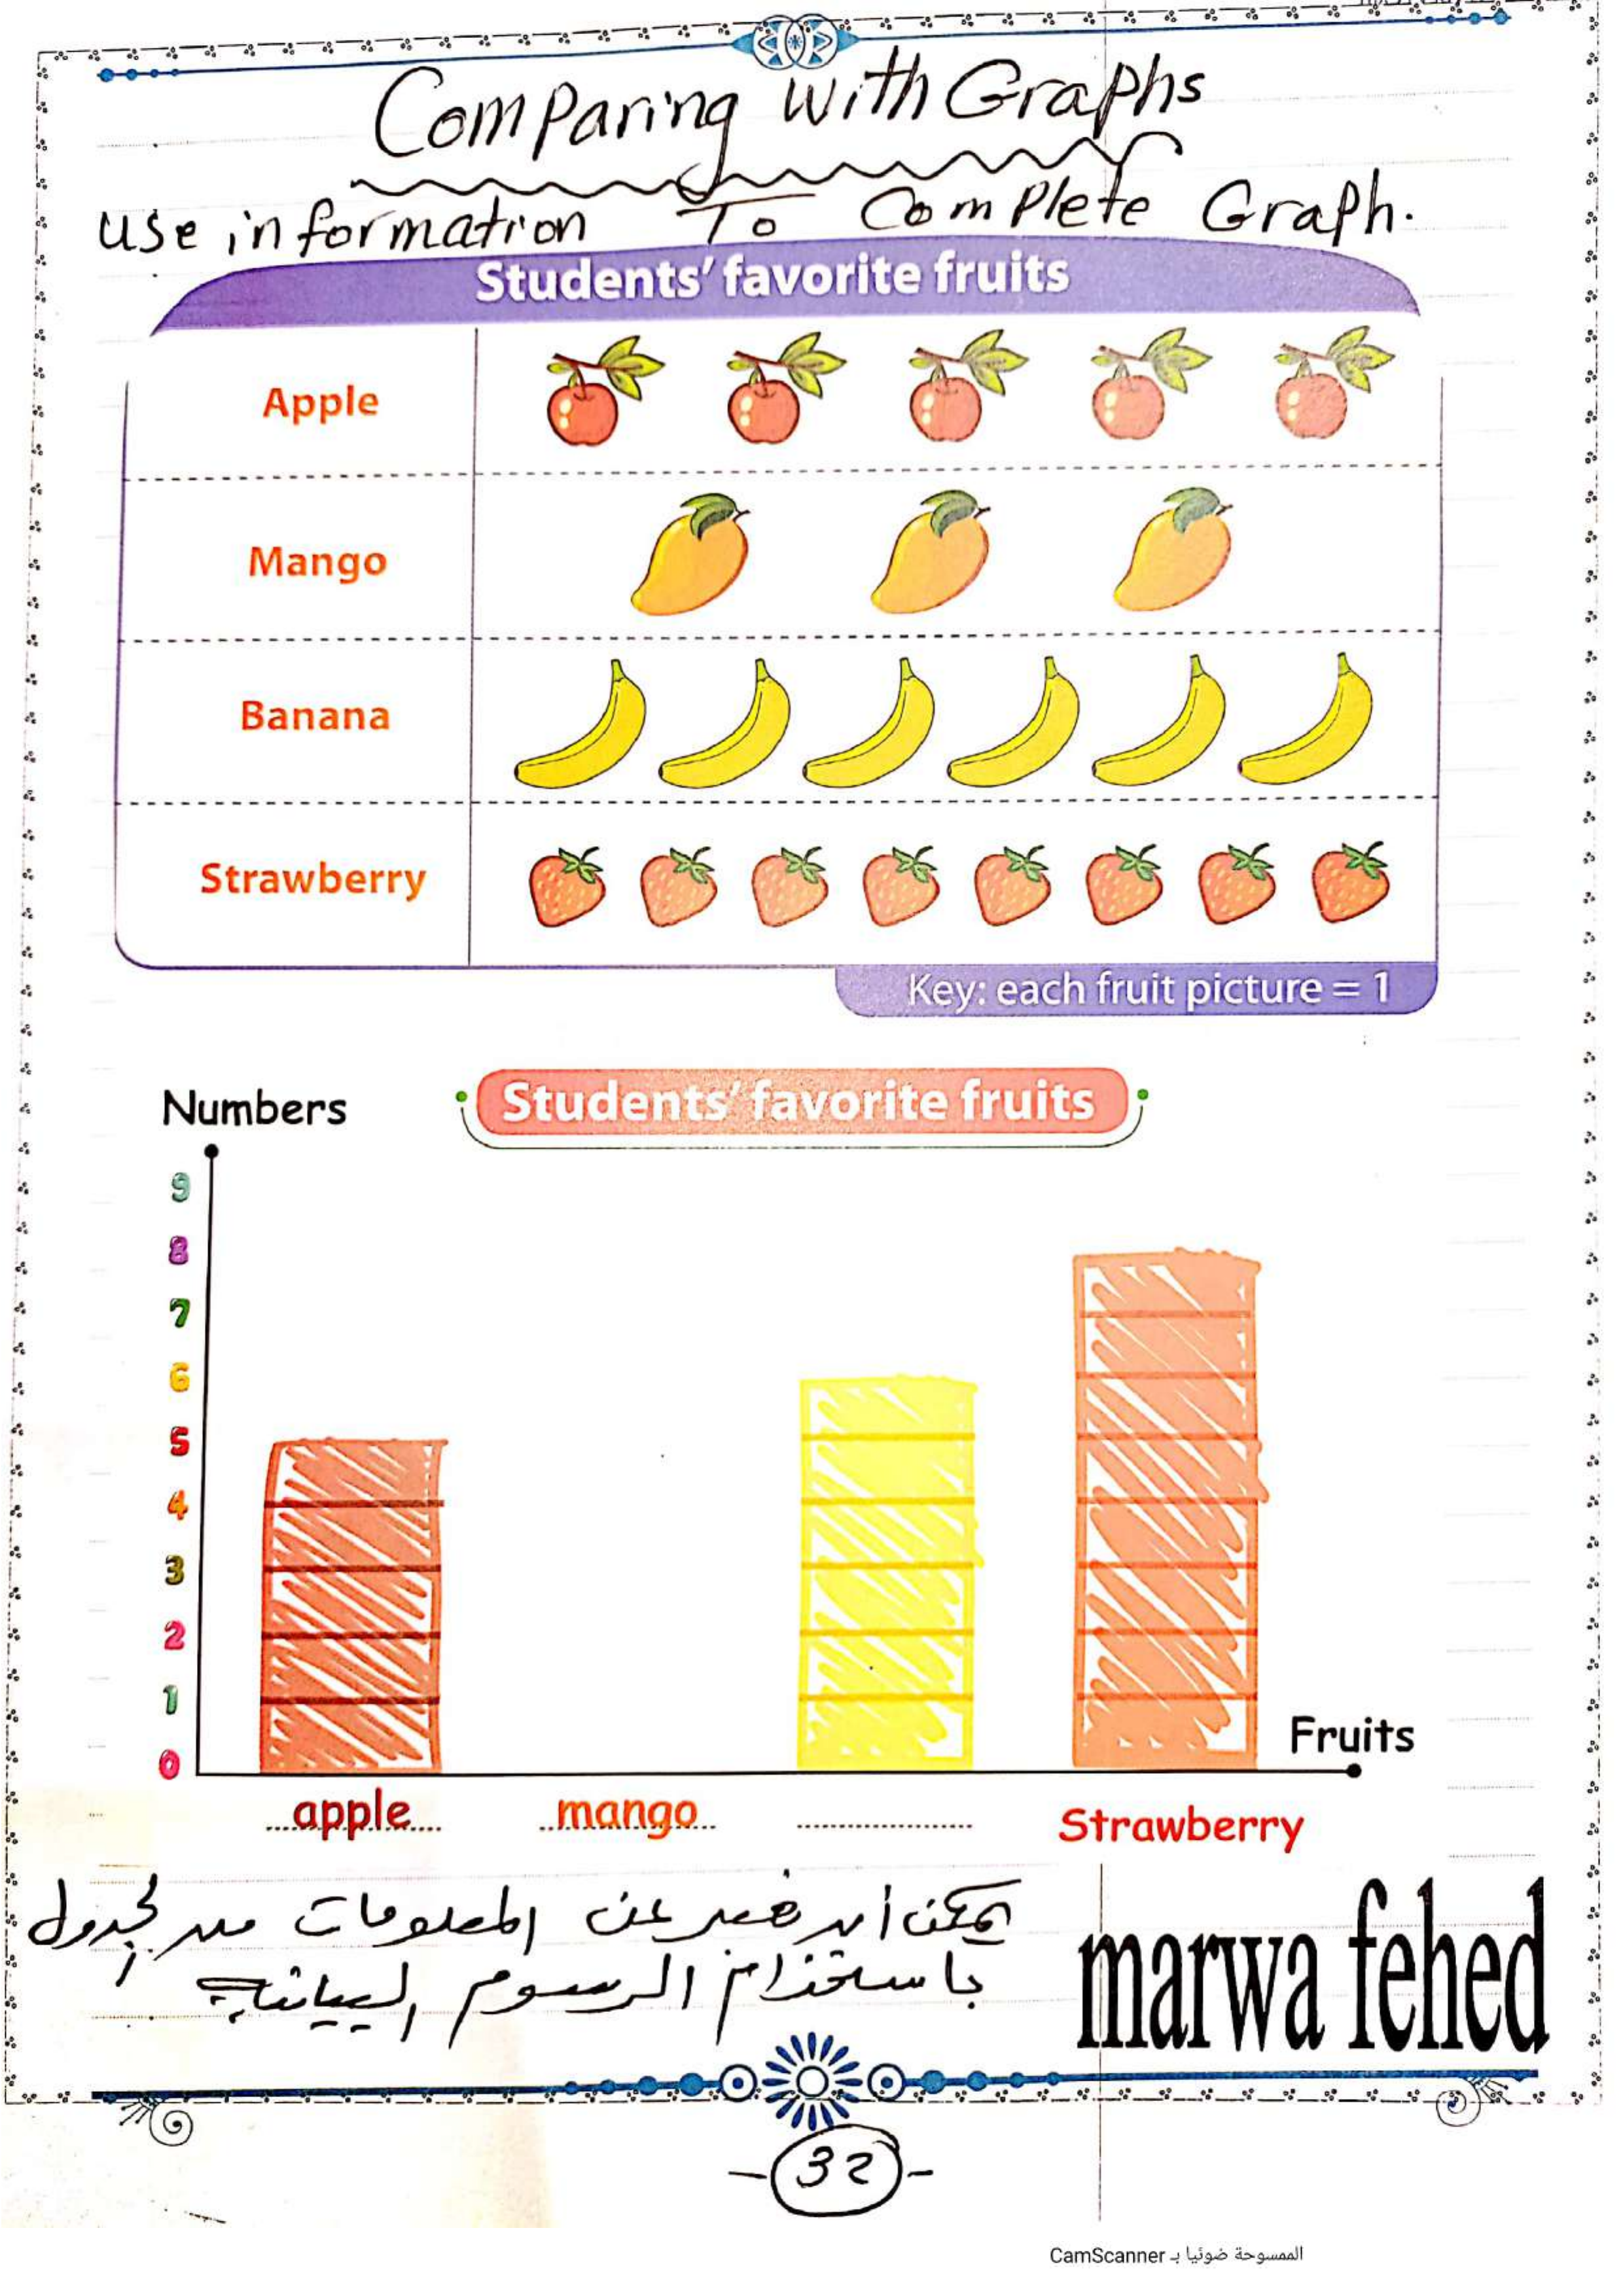 Comparing with Graphs
Use information To Complete Graph.
Students' favorite fruits
Apple
Mango
Banana
Strawberry
Key: each fruit picture = 1
Numbers
Students' favorite fruits
9
8
7
6
5
4
3
2
1
0
Fruits
apple mango Strawberry
يمكن أن نعبر عن المعلومات من الجدول
باستخدام الرسوم البيانية
marwa fehed
- 32 -
الممسوحة ضوئيا بـ CamScanner